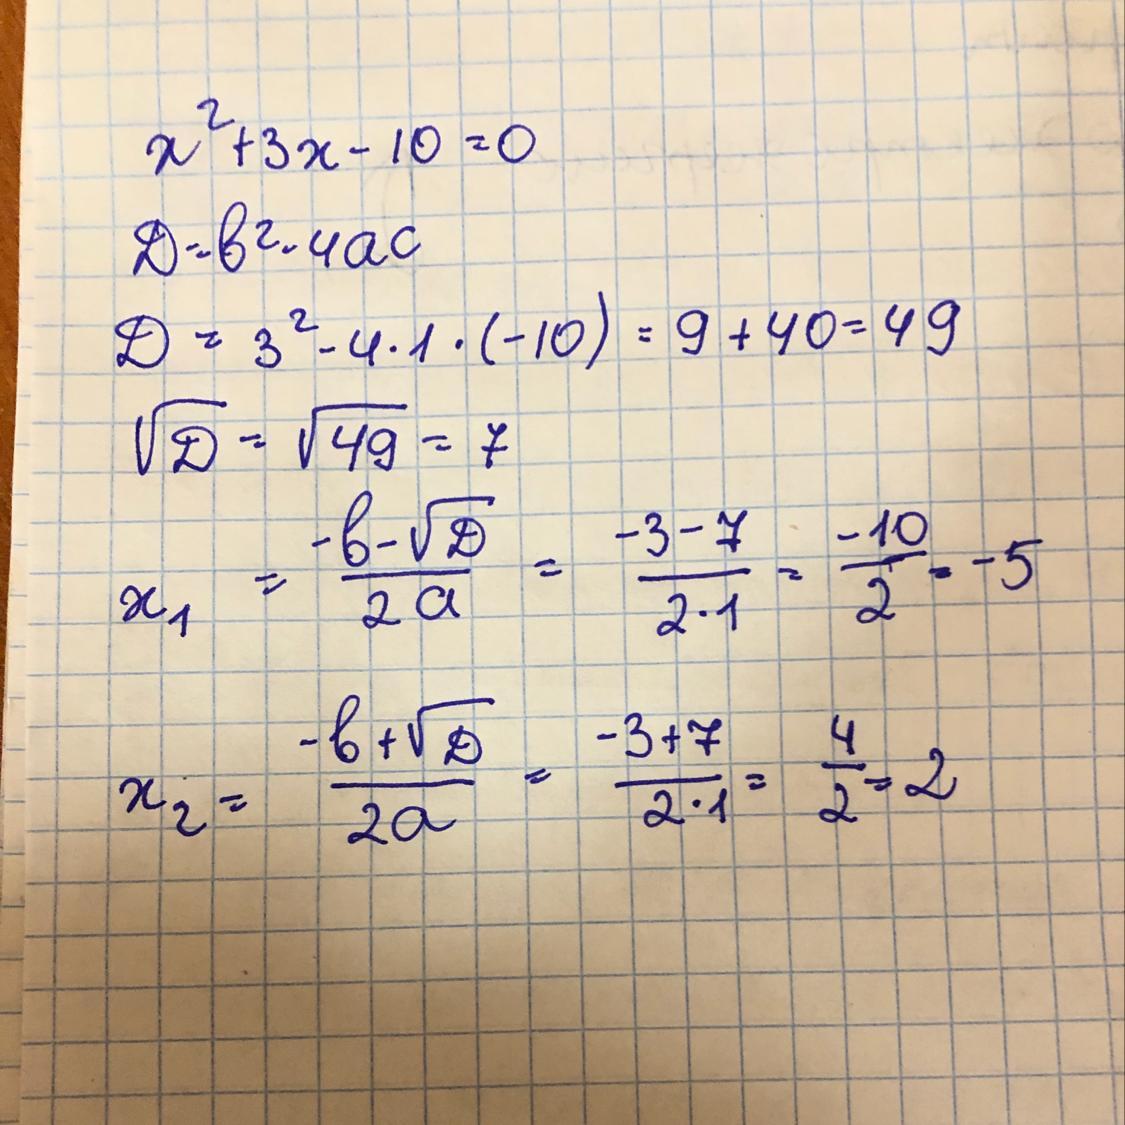 x² + 3x - 10 = 0
D = b² - 4ac
D = 3² - 4 · 1 · (-10) = 9 + 40 = 49
√D = √49 = 7
x₁ = (-b - √D) / (2a) = (-3 - 7) / (2 · 1) = -10 / 2 = -5
x₂ = (-b + √D) / (2a) = (-3 + 7) / (2 · 1) = 4 / 2 = 2